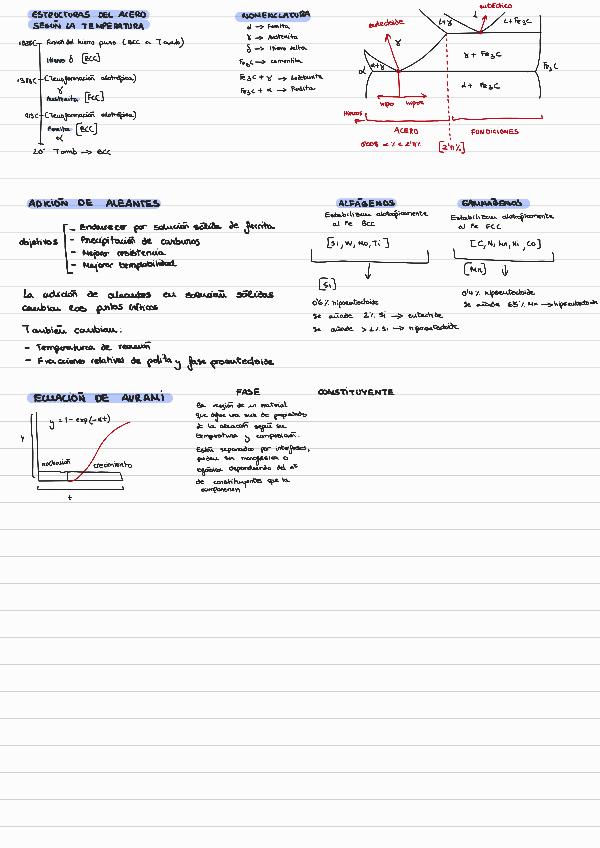 ESTRUCTURAS DEL ACERO
SEGÚN LA TEMPERATURA
Fusión del hierro puro (BCC a T amb)
Hierro δ [BCC]
(Transformación alotrópica)
γ
Austenita [FCC]
(Transformación alotrópica)
Ferrita [BCC]
α
20° Tamb → BCC
NOMENCLATURA
α → Ferrita
γ → Austenita
δ → Hierro delta
Fe3C → cementita
Fe3C + γ → Ledeburita
Fe3C + α → Perlita
eutéctico
L+γ
L
L+Fe3C
eutectoide
γ
γ + Fe3C
α
α+γ
Fe3C
α + Fe3C
hipo
hiper
Hierros
ACERO
FUNDICIONES
0'008 < % < 2'11%
[2'11%]
ADICIÓN DE ALEANTES
objetivos
- Endurecer por solución sólida de ferrita
- Precipitación de carburos
- Mejorar resistencia
- Mejorar templabilidad
La adición de aleantes en solución sólidas
cambian los puntos críticos
También cambian:
- Temperaturas de reacción
- Fracciones relativas de perlita y fase proeutectoide
ALFÁGENOS
Estabilizan alotrópicamente
al Fe BCC
[Si, W, Mo, Ti]
[Si]
0'6% hipoeutectoide
Se añade 2% Si → eutectoide
Se añade >2% Si → hipereutectoide
GAMMÁGENOS
Estabilizan alotrópicamente
al Fe FCC
[C, N, Mn, Ni, Co]
[Mn]
0'4% hipoeutectoide
Se añade 65% Mn → hipereutectoide
ECUACIÓN DE AVRAMI
y = 1 - exp(-kt)
y
nucleación
crecimiento
t
FASE
Es región de un material
que difiere una serie de propiedades
de la aleación según su
temperatura y composición.
Están separados por interfases,
pueden ser monofásica o
bifásica dependiendo del nº
de constituyentes que la
componen
CONSTITUYENTE